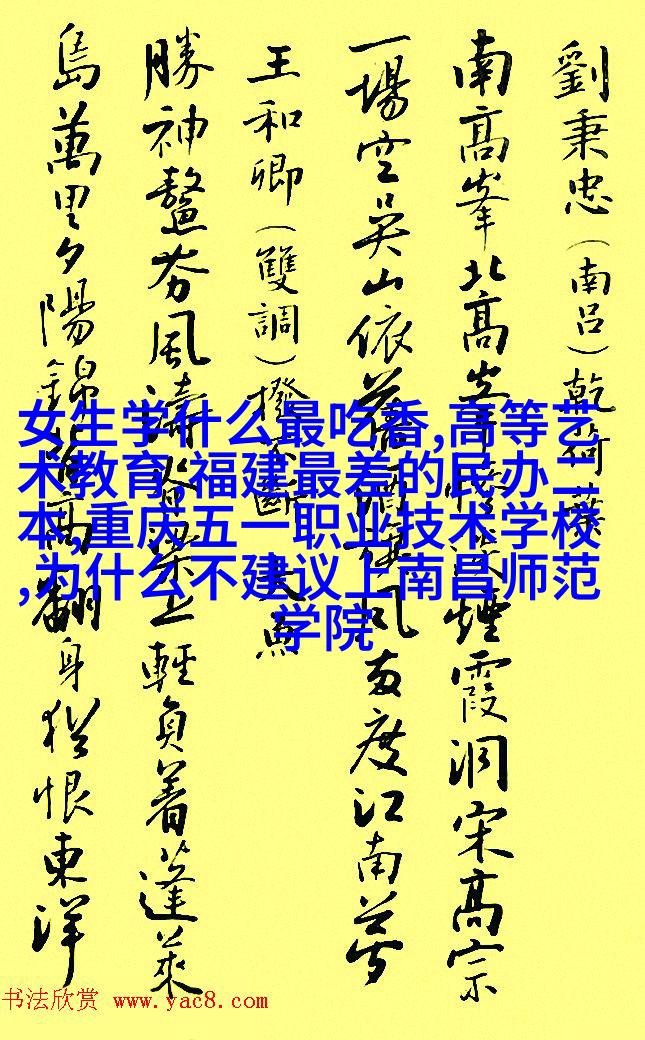 劉秉忠(南呂)乾荷葉
南高峯北高峯煙霞洞宋高宗
一場空吳山依舊酒旗風兩度江南夢
王和卿(雙調)撥不斷 大魚
勝神鰲夯風濤脊梁上輕負着蓬萊
島萬里夕陽錦背高翻身猶恨東洋
女生学什么最吃香,高等艺
术教育,福建最差的民办二
本,重庆五一职业技术学校
,为什么不建议上南昌师范
学院
书法欣赏 www.yac8.com